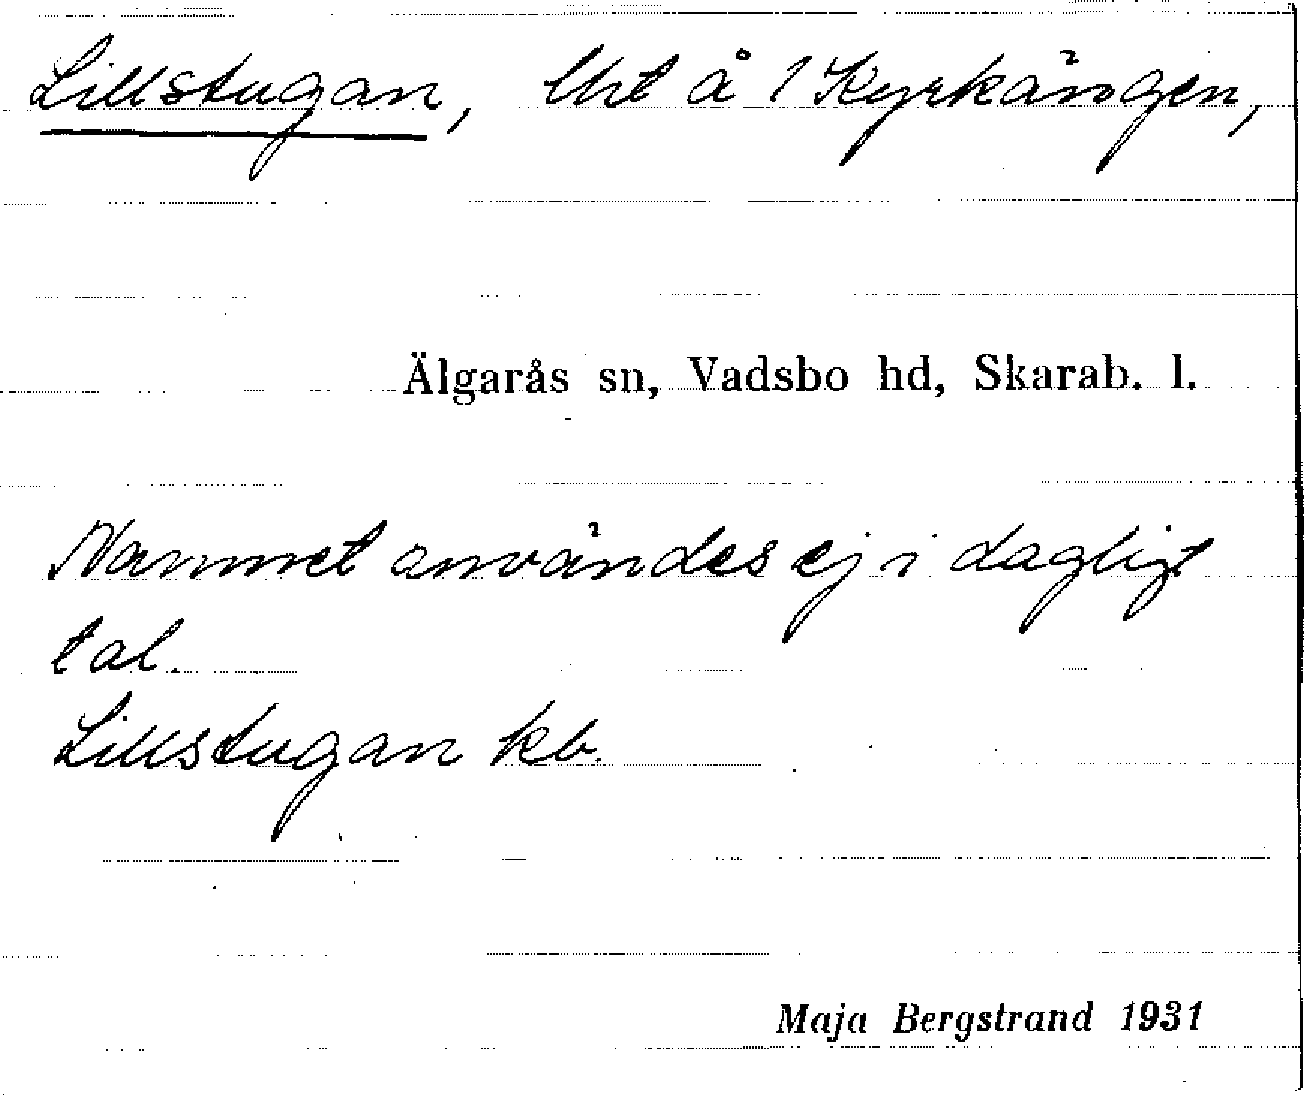 Lillstugan, lht å 1 Kyrkängen,
Älgarås sn, Vadsbo hd, Skarab. l.
Namnet användes ej i dagligt
tal.
Lillstugan kb.
Maja Bergstrand 1931